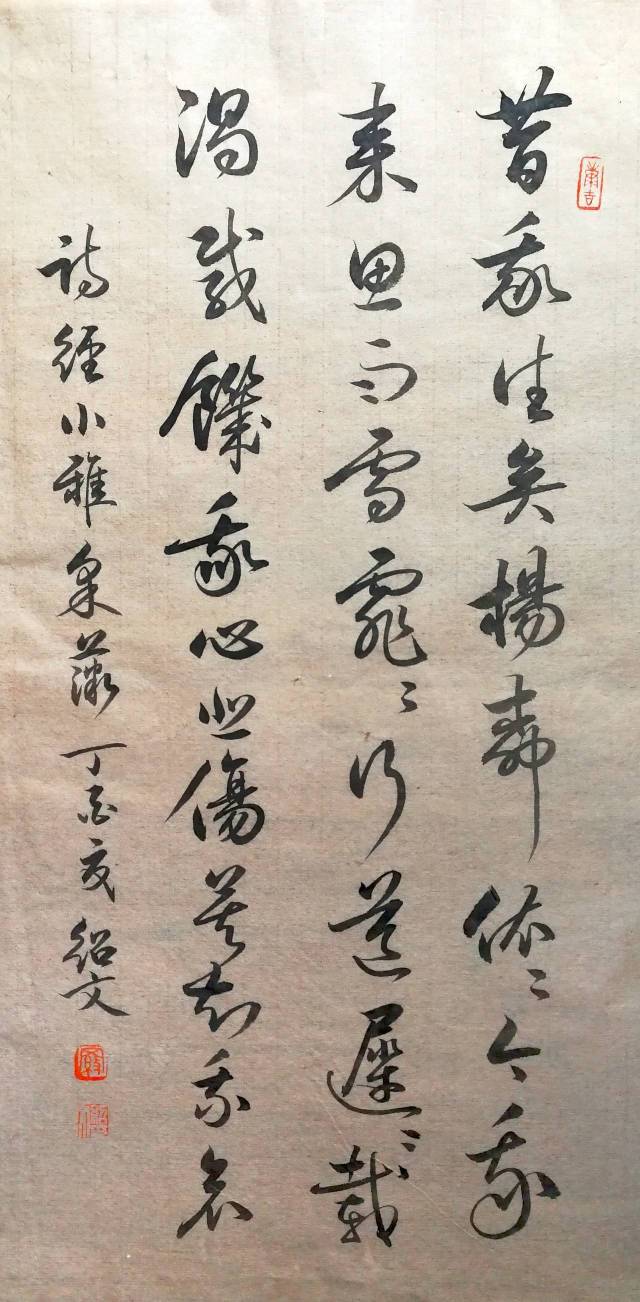 昔我往矣楊柳依〻今我
来思雨雪霏〻行道遲〻載
渴載饑我心悲傷莫知我哀
詩經小雅采薇丁酉夏紹文